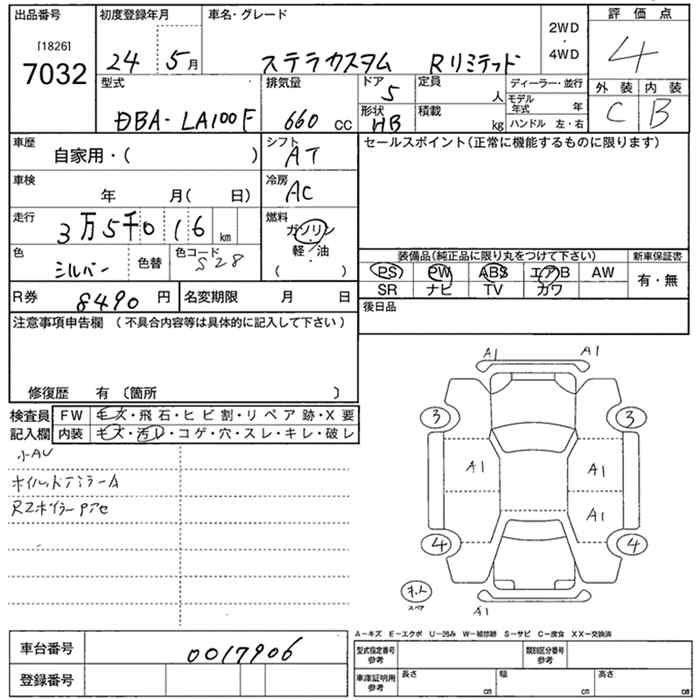 出品番号
[1826]
7032
初度登録年月
24 5月
車名・グレード
ステラカスタム Rリミテッド
2WD
・
4WD
評価点
4
型式
DBA-LA100F
排気量
660 cc
ドア
5
形状
HB
定員
人
積載
kg
ディーラー・並行
モデル年式 年
ハンドル 左・右
外装 内装
C B
車歴
自家用・( )
シフト
AT
セールスポイント(正常に機能するものに限ります)
車検
年 月( 日)
冷房
AC
走行
3万5千016km
燃料
ガソリン
軽・油
( )
色
シルバー
色替
色コード
S28
装備品(純正品に限り丸をつけて下さい)
PS PW ABS エアB AW
SR ナビ TV カワ
新車保証書
有・無
R券
8490円
名変期限 月 日
後日品
注意事項申告欄 (不具合内容等は具体的に記入して下さい)
修復歴 有 〔箇所 〕
検査員記入欄
FW キズ・飛石・ヒビ割・リペア跡・X要
内装 キズ・汚レ・コゲ・穴・スレ・キレ・破レ
小AU
A1 A1
3 3
A1 A1
A1
4 4
スペア
A1
A-キズ E-エクボ U-凹み W-補修跡 S-サビ C-腐食 XX-交換済
車台番号
0017906
登録番号
型式指定番号
参考
類別区分番号
参考
車庫証明用
参考
長さ cm
幅 cm
高さ cm